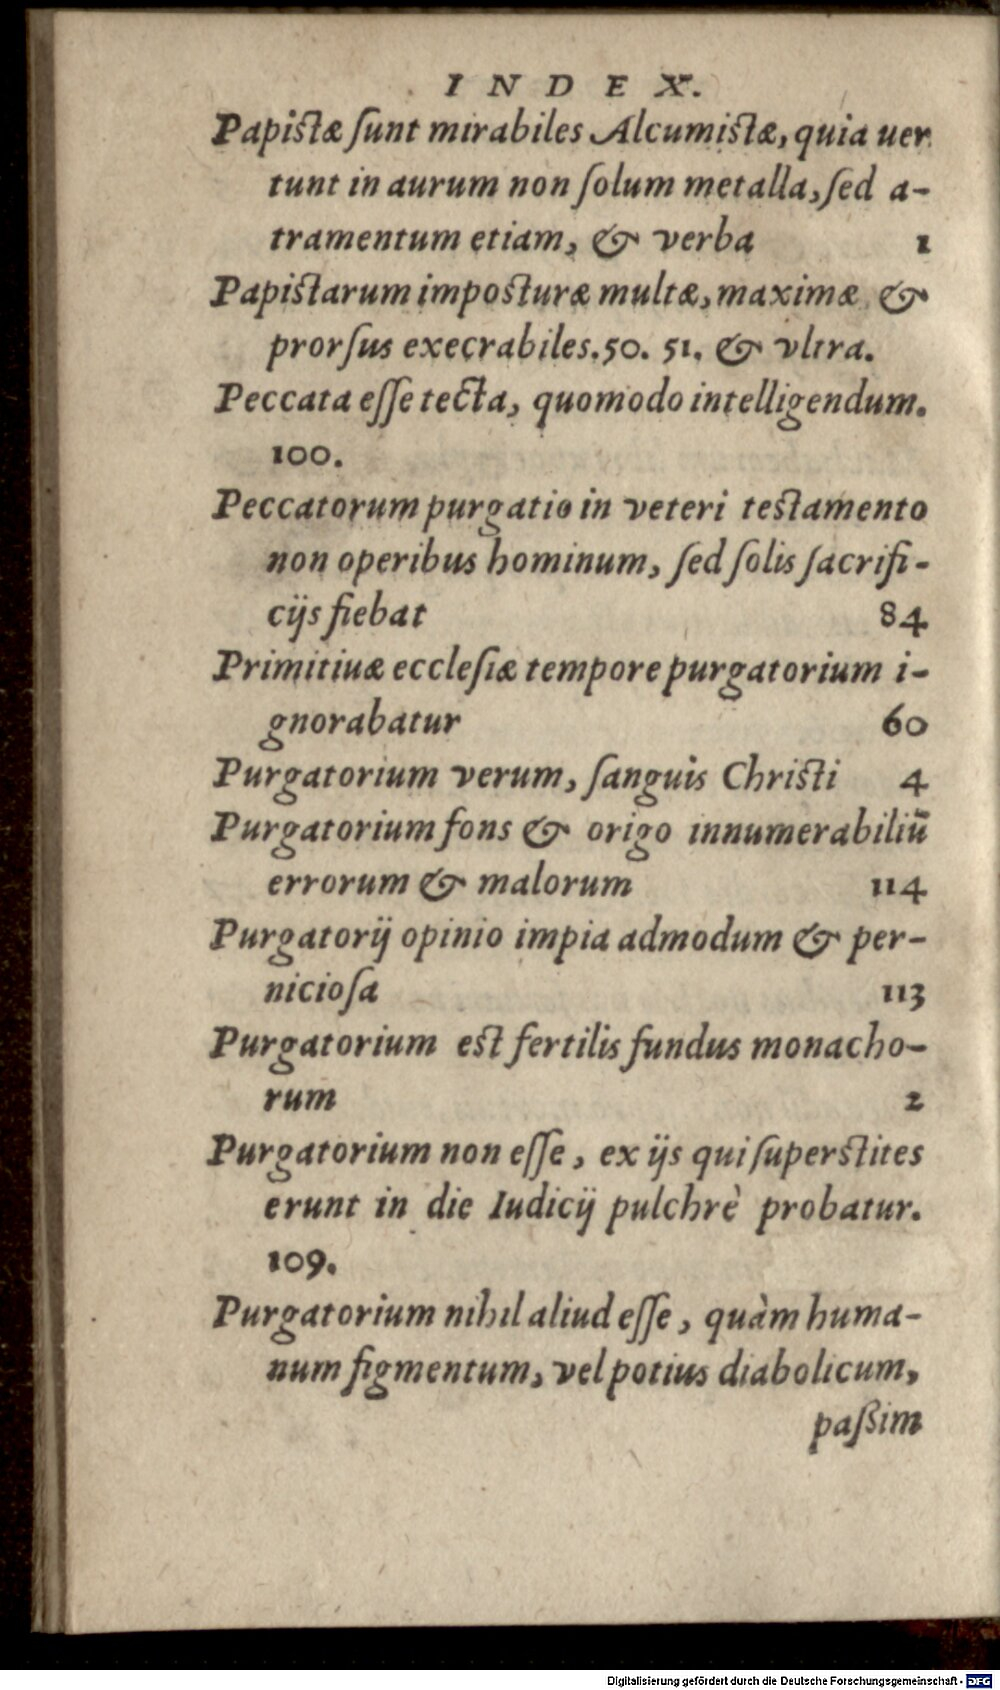 INDEX.
Papistæ ſunt mirabiles Alcumistæ, quia uer
tunt in aurum non ſolum metalla, ſed a-
tramentum etiam, & verba 1
Papistarum imposturæ multæ, maximæ &
prorſus execrabiles. 50. 51. & vltra.
Peccata eſſe tecta, quomodo intelligendum.
100.
Peccatorum purgatio in veteri testamento
non operibus hominum, ſed ſolis ſacrifi-
cijs fiebat 84
Primitiuæ eccleſiæ tempore purgatorium i-
gnorabatur 60
Purgatorium verum, ſanguis Christi 4
Purgatorium fons & origo innumerabiliū
errorum & malorum 114
Purgatorij opinio impia admodum & per-
nicioſa 113
Purgatorium est fertilis fundus monacho-
rum 2
Purgatorium non eſſe, ex ijs qui ſuperstites
erunt in die Iudicij pulchrè probatur.
109.
Purgatorium nihil aliud eſſe, quàm huma-
num figmentum, vel potius diabolicum,
paßim
Digitalisierung gefördert durch die Deutsche Forschungsgemeinschaft - DFG